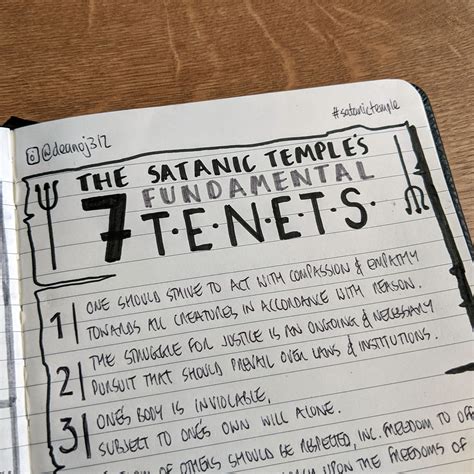 #satanictemple
@deanoj312
THE SATANIC TEMPLE'S
7 FUNDAMENTAL
T·E·N·E·T·S·
1| ONE SHOULD STRIVE TO ACT WITH COMPASSION & EMPATHY
TOWARDS ALL CREATURES IN ACCORDANCE WITH REASON.
2| THE STRUGGLE FOR JUSTICE IS AN ONGOING & NECESSARY
PURSUIT THAT SHOULD PREVAIL OVER LAWS & INSTITUTIONS.
3| ONE'S BODY IS INVIOLABLE,
SUBJECT TO ONE'S OWN WILL ALONE.
OF OTHERS SHOULD BE RESPECTED, INC. FREEDOM TO
UPON THE FREEDOMS OF